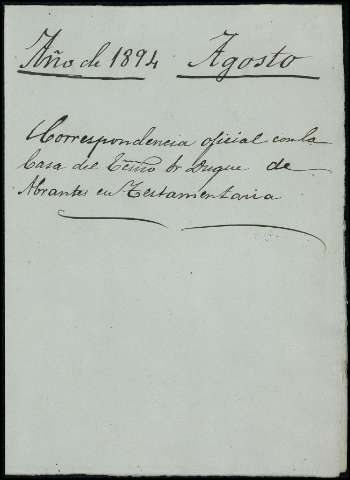 Año de 1894 Agosto
Correspondencia oficial con la
Casa del Exmo Sr Duque de
Abrantes en Testamentaria